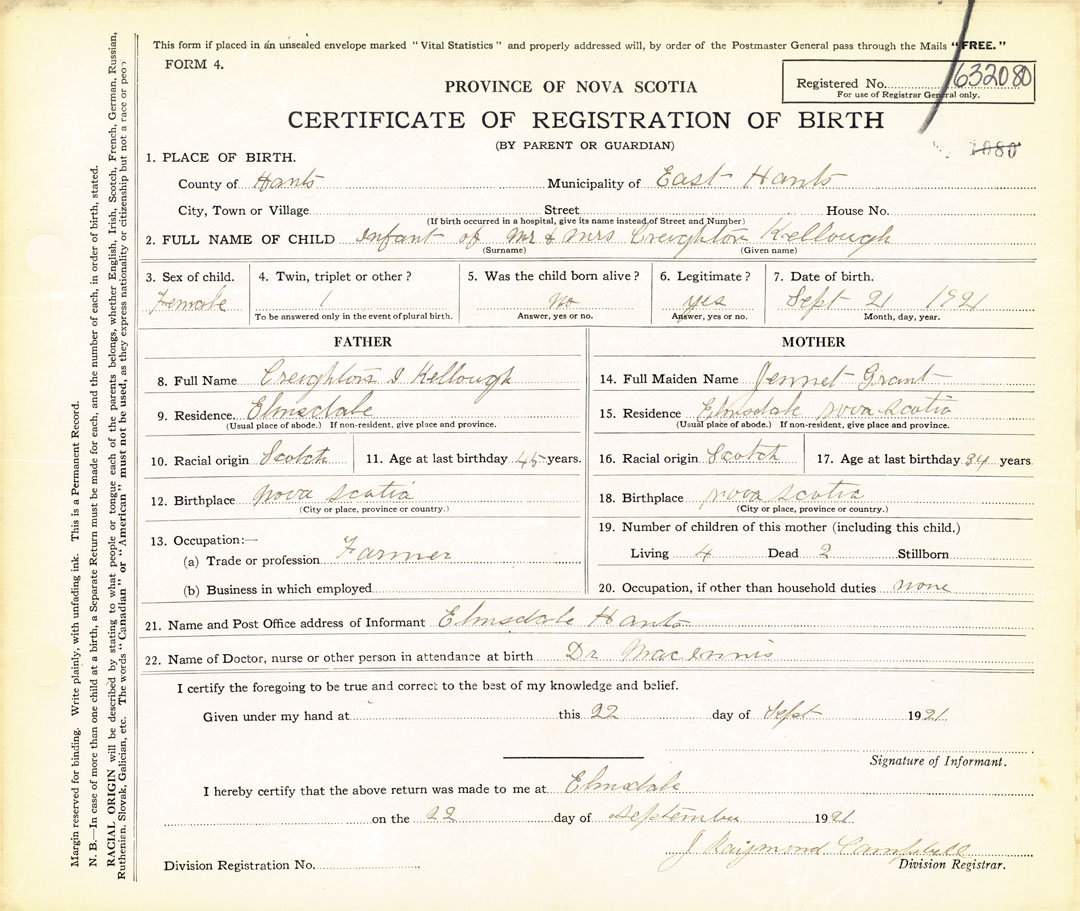 This form if placed in an unsealed envelope marked "Vital Statistics" and properly addressed will, by order of the Postmaster General pass through the Mails "FREE."
FORM 4.
Registered No. 632080
For use of Registrar General only.
PROVINCE OF NOVA SCOTIA
CERTIFICATE OF REGISTRATION OF BIRTH
(BY PARENT OR GUARDIAN)
1080
1. PLACE OF BIRTH.
County of Hants Municipality of East Hants
City, Town or Village Street House No.
(If birth occurred in a hospital, give its name instead of Street and Number)
2. FULL NAME OF CHILD Infant of Mr & Mrs Creighton Kellough
(Surname) (Given name)
3. Sex of child. 4. Twin, triplet or other? 5. Was the child born alive? 6. Legitimate? 7. Date of birth.
Female 1 no yes Sept 21 1921
To be answered only in the event of plural birth. Answer, yes or no. Answer, yes or no. Month, day, year.
FATHER
8. Full Name Creighton I Kellough
9. Residence. Elmsdale
(Usual place of abode.) If non-resident, give place and province.
10. Racial origin Scotch 11. Age at last birthday 45 years.
12. Birthplace Nova Scotia
(City or place, province or country.)
13. Occupation:—
(a) Trade or profession Farmer
(b) Business in which employed
MOTHER
14. Full Maiden Name Jennet Grant
15. Residence Elmsdale Nova Scotia
(Usual place of abode.) If non-resident, give place and province.
16. Racial origin Scotch 17. Age at last birthday 34 years
18. Birthplace Nova Scotia
(City or place, province or country.)
19. Number of children of this mother (including this child.)
Living 4 Dead 2 Stillborn
20. Occupation, if other than household duties none
21. Name and Post Office address of Informant Elmsdale Hants
22. Name of Doctor, nurse or other person in attendance at birth Dr MacInnis
I certify the foregoing to be true and correct to the best of my knowledge and belief.
Given under my hand at this 22 day of Sept 1921.
Signature of Informant.
I hereby certify that the above return was made to me at Elmsdale
on the 22 day of September 1921.
J Raymond Campbell
Division Registration No. Division Registrar.
Margin reserved for binding. Write plainly, with unfading ink. This is a Permanent Record.
N. B.—In case of more than one child at a birth, a Separate Return must be made for each, and the number of each, in order of birth, stated.
RACIAL ORIGIN will be described by stating to what people or tongue each of the parents belongs, whether English, Irish, Scotch, French, German, Russian,
Ruthenian, Slovak, Galician, etc. The words "Canadian" or "American" must not be used, as they express nationality or citizenship but not a race or peo